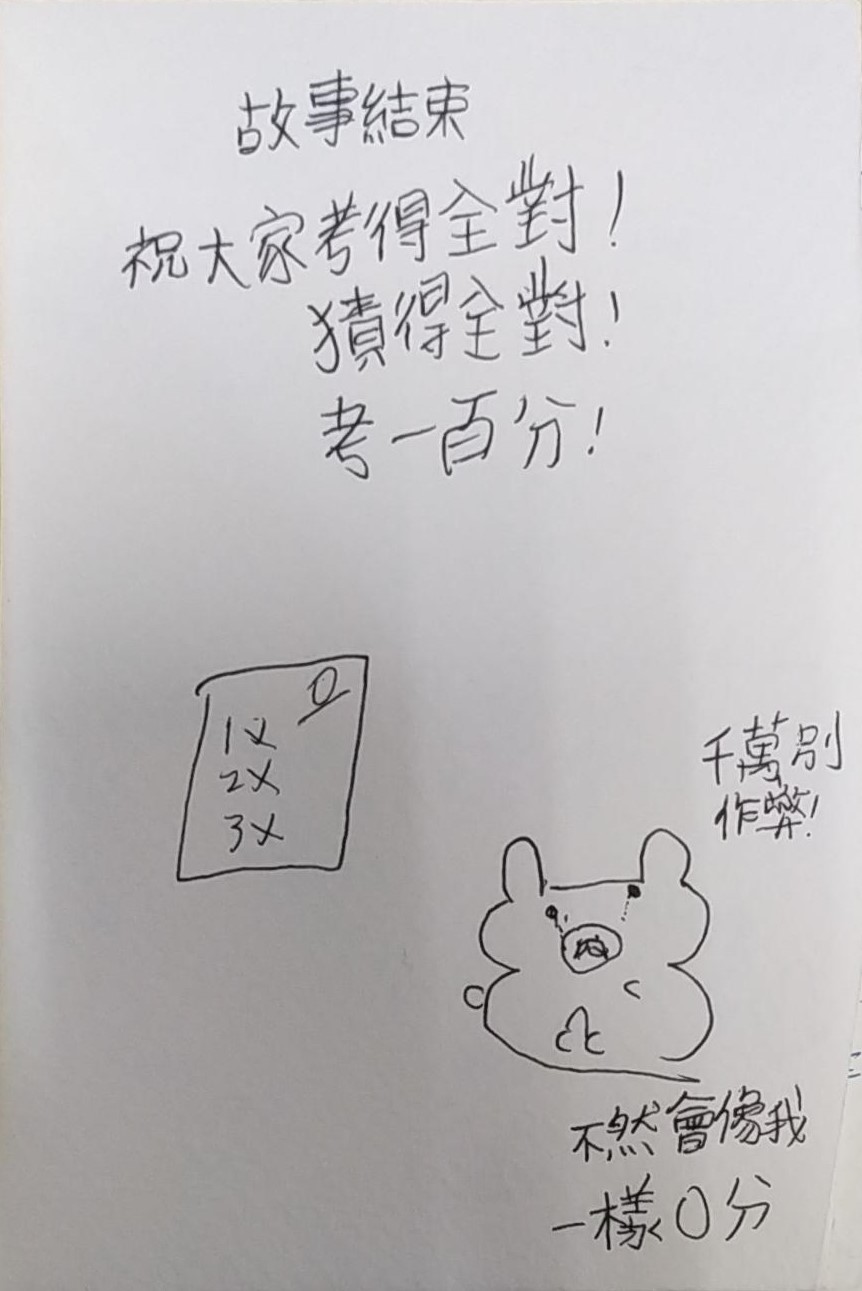 故事結束
祝大家考得全對！
得全對！
考一百分！
0
1X
2X
3X
千萬別
作弊！
不然會像我
一樣0分